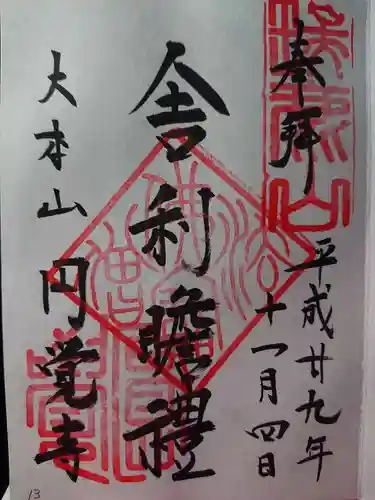 奉拝
平成廿九年
十一月四日
舎利瞻禮
大本山
円覚寺
13